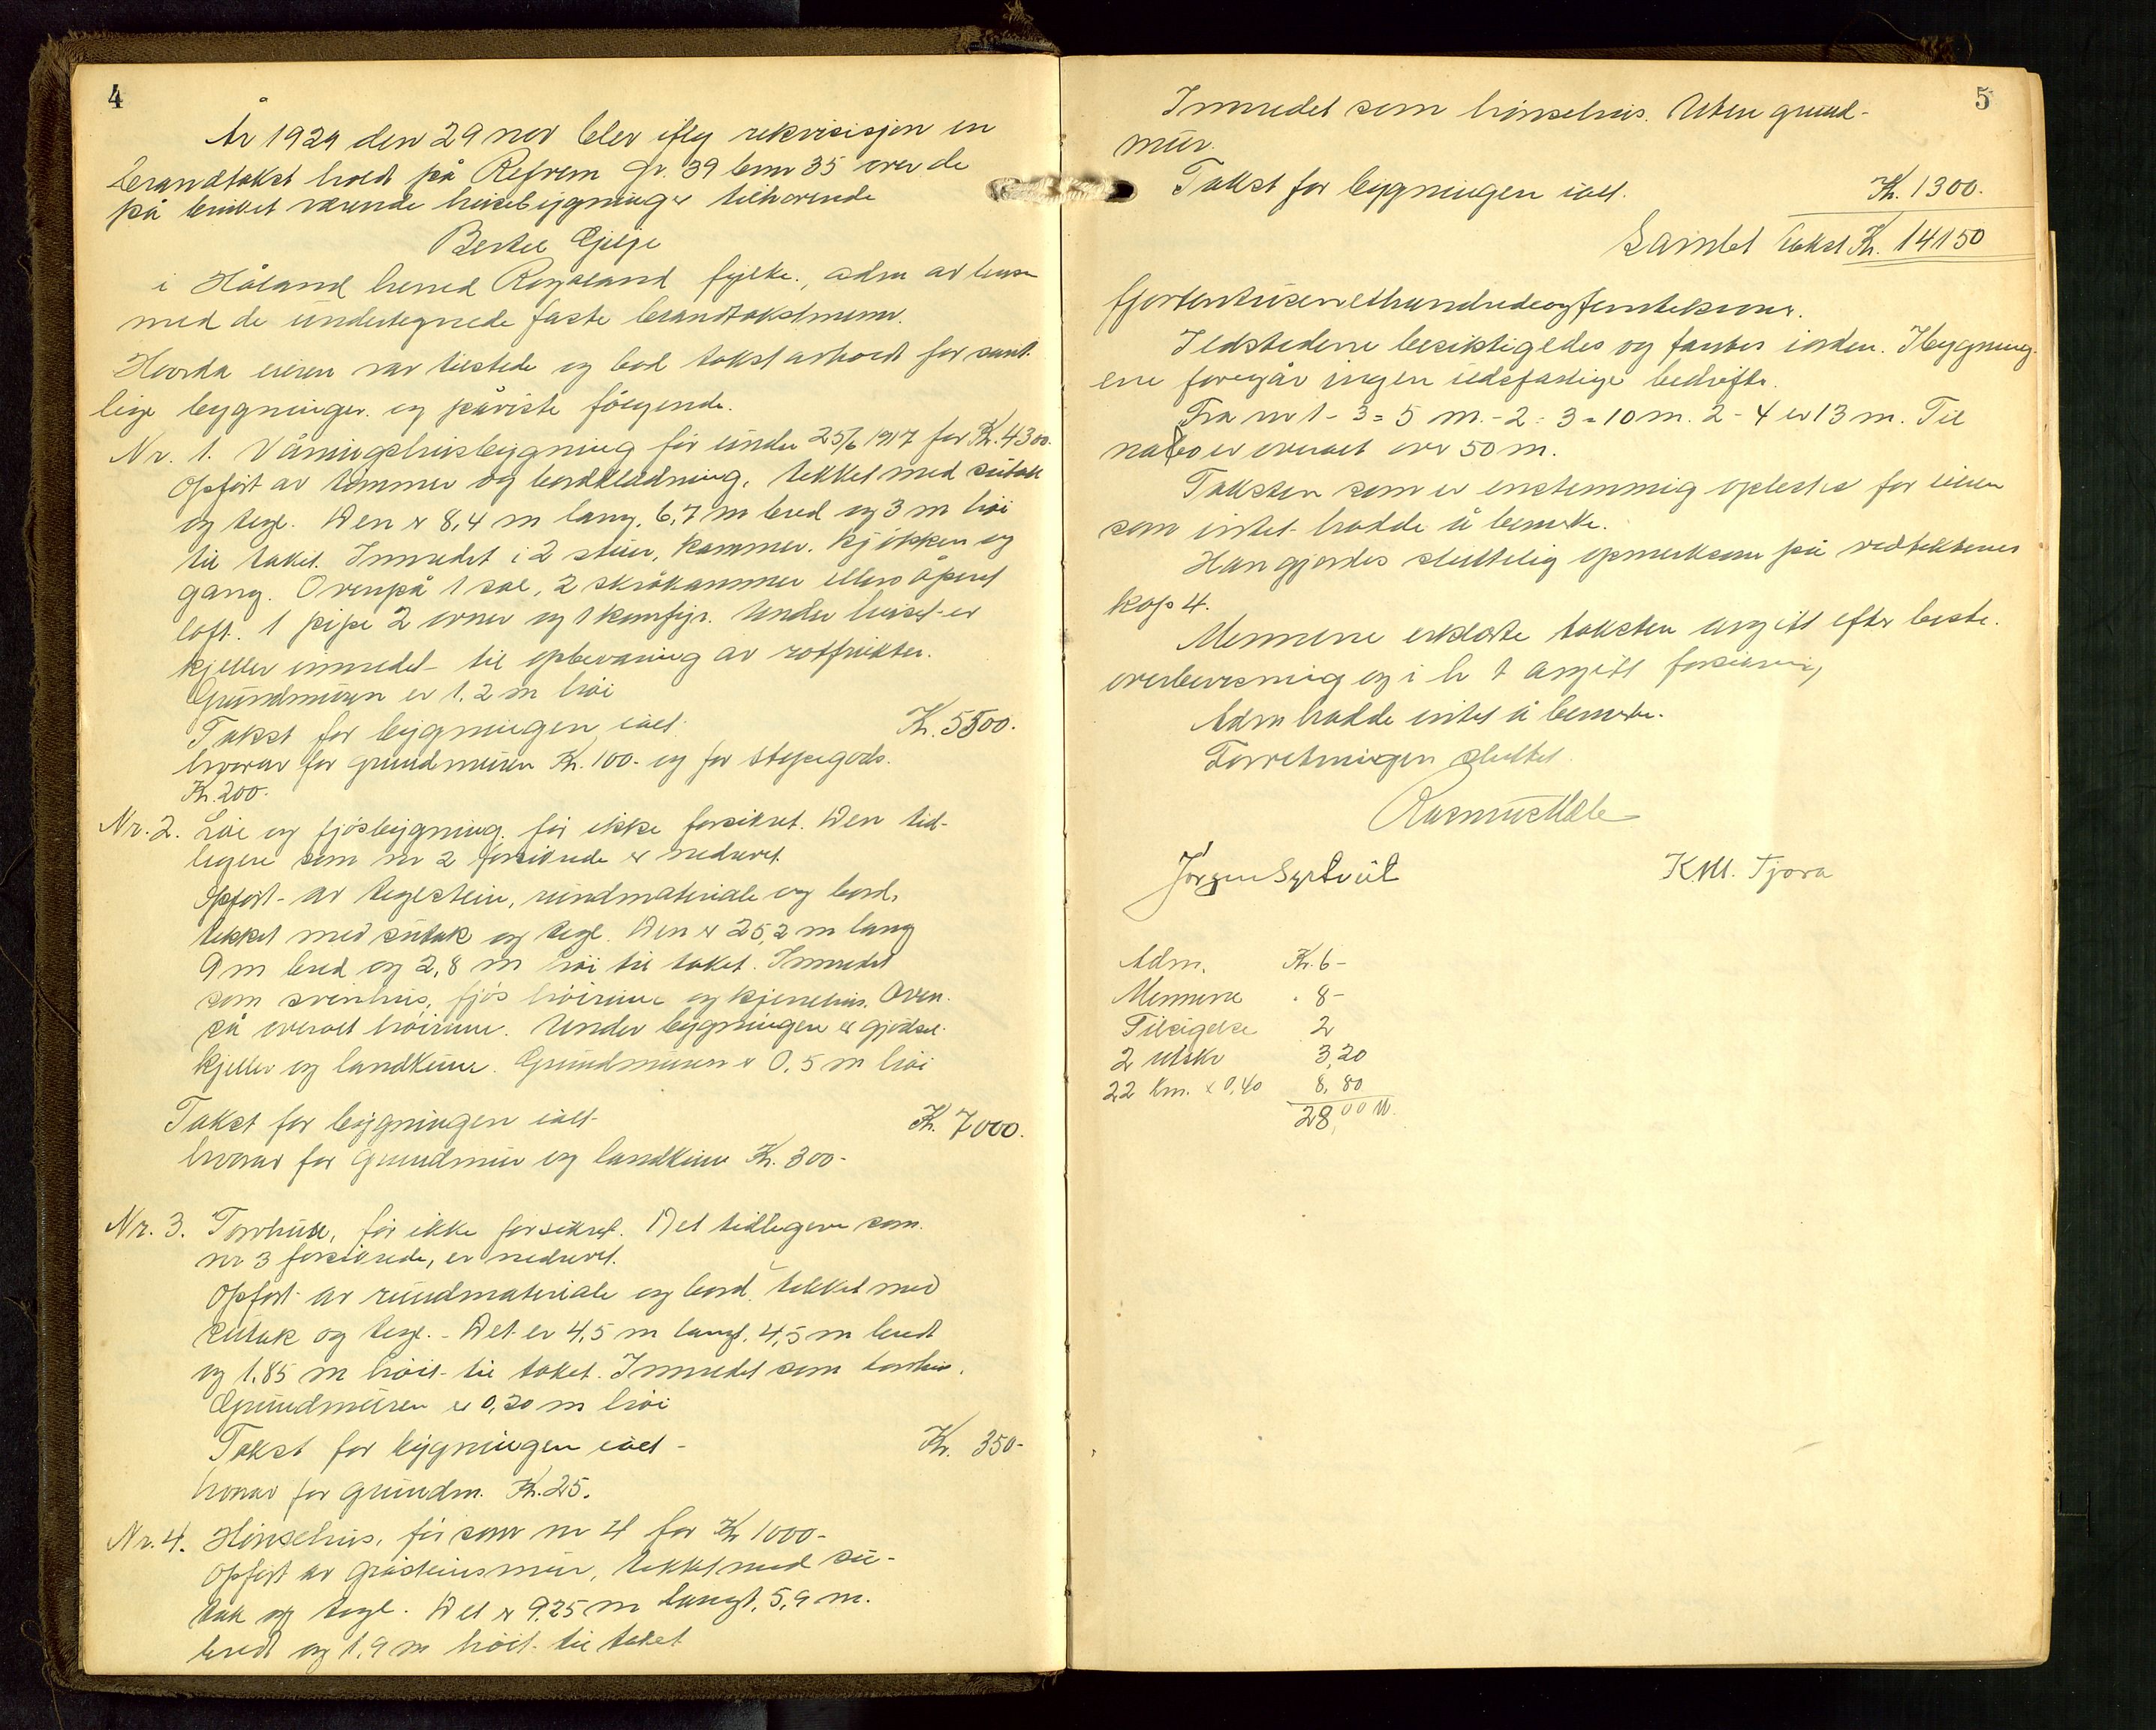 4
År 1929 den 29 nov blev iflg rekvisisjon en
brandtakst holdt på Refrem Gr. 39 bnr 35 over de
på bruket værende husebygninger tilhørende
Bertel Gjilje
i Håland herred Rogaland fylke., adm av lensm
med de undertegnede faste brandtakstmenn.
Hvorda eieren var tilstede og bad takst avholdt for samt-
lige bygninger. og påviste følgende.
Nr. 1. Våningshusbygning før under 25/6 1917 for Kr. 4300.
Opført av tømmer og bordklædning, tekket med sutak
og tegl. Den er 8,4 m lang, 6,7 m bred og 3 m høi
til taket. Innredet i 2 stuer, kammer. kjøkken og
gang. Ovenpå 1 sal, 2 skråkammer ellers åpent
loft. 1 pipe 2 ovner og 1 komfyr. Under huset er
kjeller innredet til opbevaring av rotfrukter.
Grundmuren er 1.2 m høi
Takst for bygningen ialt. Kr. 5500.
hvorav for grundmuren Kr. 100.- og for støpegods.
Kr. 200.
Nr. 2. Løe og fjøsbygning. før ikke forsikret. Den tid-
ligere som nr 2 forsikrede er nedrevet.
Opført av teglstein, rundmateriale og bord,
tekket med sutak og tegl. Den er 25,2 m lang
9 m bred og 2,8 m høi til taket. Innredet
som svinhus, fjøs høirum og kjernehus. Oven-
på overalt høirum. Under bygningen er gjødsel-
kjeller og landkum. Grundmuren er 0,5 m høi
Takst for bygningen ialt - Kr. 7000.
hvorav for Grundmur og landkum Kr. 300-
Nr. 3. Torvhus, før ikke forsikret. Det tidligere som.
nr 3 forsikrede, er nedrevet.
Opført av rundmateriale og bord, tekket med
sutak og tegl. - Det er 4,5 m langt, 4,5 m bredt
og 1.85 m høit til taket. Innredet som torvhus.
Grundmuren er 0,20 m høi
Takst for bygningen ialt - Kr. 350-
hvorav for grundm. Kr. 25.
Nr. 4. Hønsehus, før som nr 4 for Kr 1000-
Opført av Gråsteinsmur, tekket med su-
tak og tegl. Det er 9,25 m langt, 5,9 m.
bredt og 1,9 m høit til taket
5
Innredet som hønsehus. Uten grund-
mur.
Takst for bygningen ialt. Kr. 1300.
Samlet takst Kr. 14150
fjortentusenethundredeogfemtikroner.
Ildstedene besiktigedes og fantes iorden. I bygning-
ene foregår ingen ildsfarlige bedrifter.
Fra nr 1 - 3 = 5 m. - 2 - 3 = 10 m. 2 - 4 er 13 m. Til
nabo er overalt over 50 m.
Taksten som er enstemmig oplestes for eieren
som intet hadde å bemerke.
Han gjordes sluttelig opmerksom på vedtektenes
kap 4.
Mennene erklærte taksten avgitt efter beste.
overbevisning og i h t avgitt forsikring
Adm hadde intet å bemerke.
Forretningen sluttet.
Rasmus Mæle
Jørgen Syrtvüt K. M. Tjora
Adm. Kr. 6-
Mennene . 8-
Tilsigelse 2
2 utskr 3,20
22 Km. x 0,40 8,80
28,00